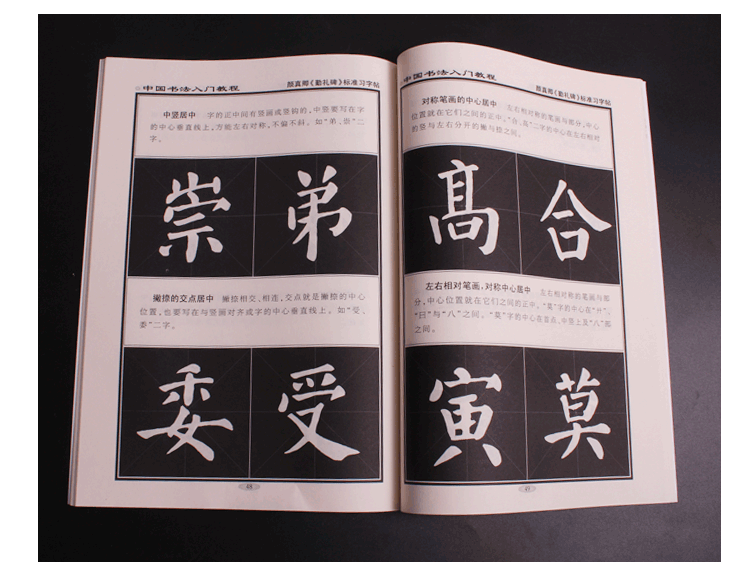 ☆中国书法入门教程 颜真卿《勤礼碑》标准习字帖
中竖居中 字的正中间有竖画或竖钩的,中竖要写在字
的中心垂直线上,方能左右对称,不偏不斜。如“弟、崇”二
字。
崇 弟
撇捺的交点居中 撇捺相交、相连,交点就是撇捺的中心
位置,也要写在与竖画对齐成字的中心垂直线上。如“受、
委”二字。
委 受
48
☆中国书法入门教程 颜真卿《勤礼碑》标准习字帖
对称笔画的中心居中 左右相对称的笔画与部分,中心
位置就在它们之间的正中。“合、高”二字的中心在左右相对
的竖与左右分开的撇与捺之间。
髙 合
左右相对笔画,对称中心居中 左右相对称的笔画与部
分,中心位置就在它们之间的正中。“莫”字的中心在“艹”、
“曰”与“八”之间。“寅”字的中心在首点、中竖上及“八”部
之间。
寅 莫
49